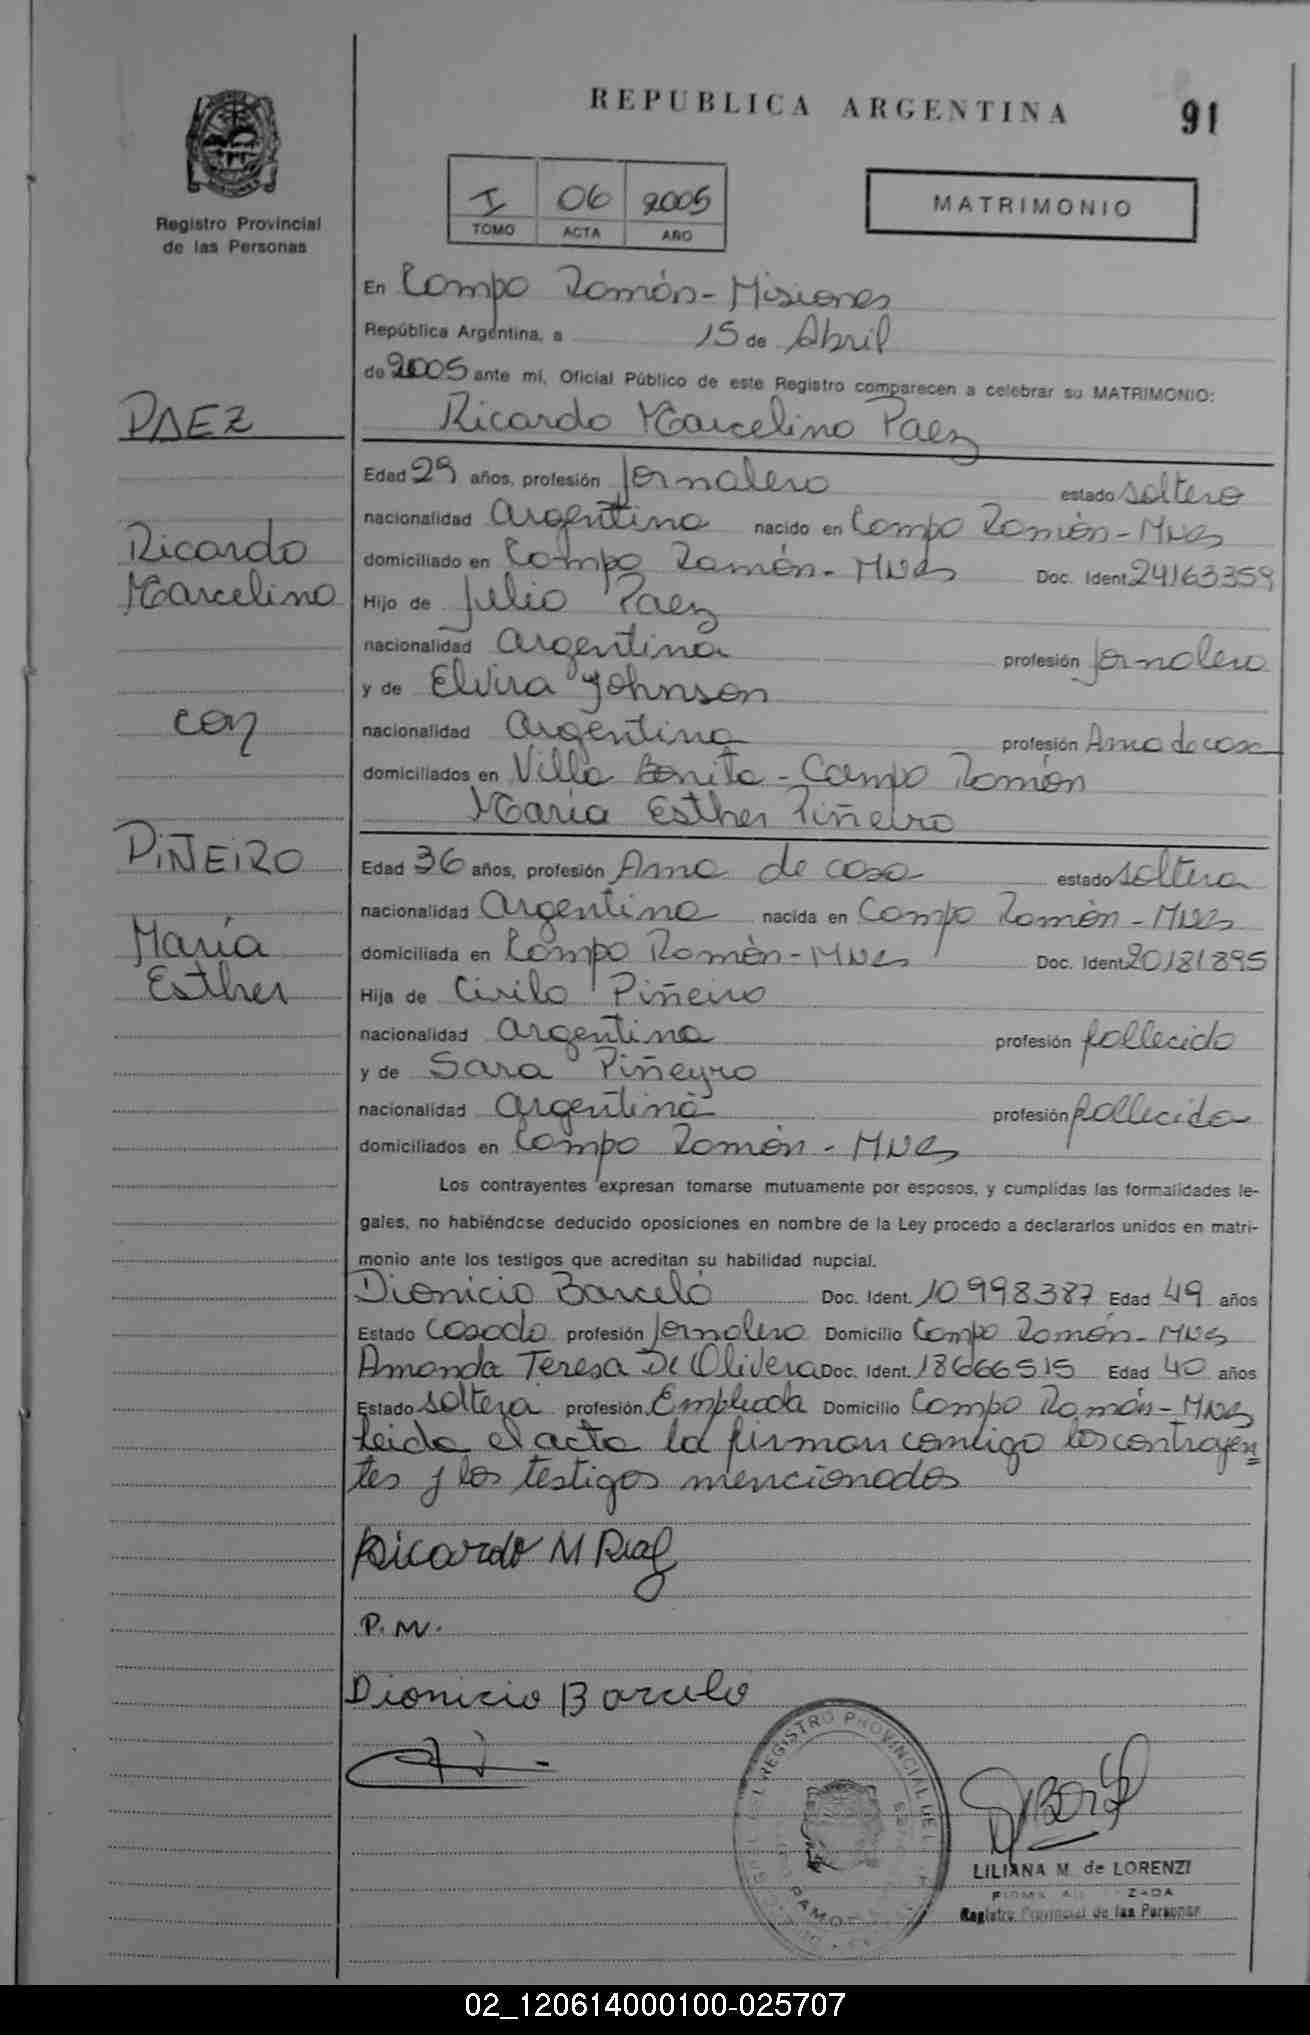 REPUBLICA ARGENTINA
91
Registro Provincial
de las Personas
I 06 2005
TOMO ACTA AÑO
MATRIMONIO
En Campo Ramón - Misiones
República Argentina, a 15 de Abril
de 2005 ante mí, Oficial Público de este Registro comparecen a celebrar su MATRIMONIO:
PAEZ
Ricardo Marcelino Paez
Edad 29 años, profesión Jornalero estado soltero
nacionalidad argentina nacido en Campo Ramón - MNes
Ricardo
domiciliado en Campo Ramón - MNes Doc. Ident. 24163359
Marcelino
Hijo de Julio Paez
nacionalidad argentina profesión Jornalero
y de Elvira Johnson
con
nacionalidad argentina profesión Ama de casa
domiciliados en Villa Bonita - Campo Ramón
María Esther Piñeiro
PIÑEIRO
Edad 36 años, profesión Ama de casa estado soltera
nacionalidad argentina nacida en Campo Ramón - MNes
María
domiciliada en Campo Ramón - MNes Doc. Ident. 20181895
Esther
Hija de Cirilo Piñeiro
nacionalidad argentina profesión fallecido
y de Sara Piñeyro
nacionalidad argentina profesión fallecida
domiciliados en Campo Ramón - MNes
Los contrayentes expresan tomarse mutuamente por esposos, y cumplidas las formalidades le-
gales, no habiéndose deducido oposiciones en nombre de la Ley procedo a declararlos unidos en matri-
monio ante los testigos que acreditan su habilidad nupcial.
Dionicio Barceló Doc. Ident. 10998387 Edad 49 años
Estado casado profesión Jornalero Domicilio Campo Ramón - MNes
Amanda Teresa De Olivera Doc. Ident. 18666515 Edad 40 años
Estado soltera profesión Empleada Domicilio Campo Ramón - MNes
leida el acta la firman conmigo los contrayen
tes y los testigos mencionados
Ricardo M Paez
P. M.
Dionicio Barcelo
REGISTRO PROVINCIAL DE
LILIANA M. de LORENZI
Registro Provincial de las Personas
02_120614000100-025707